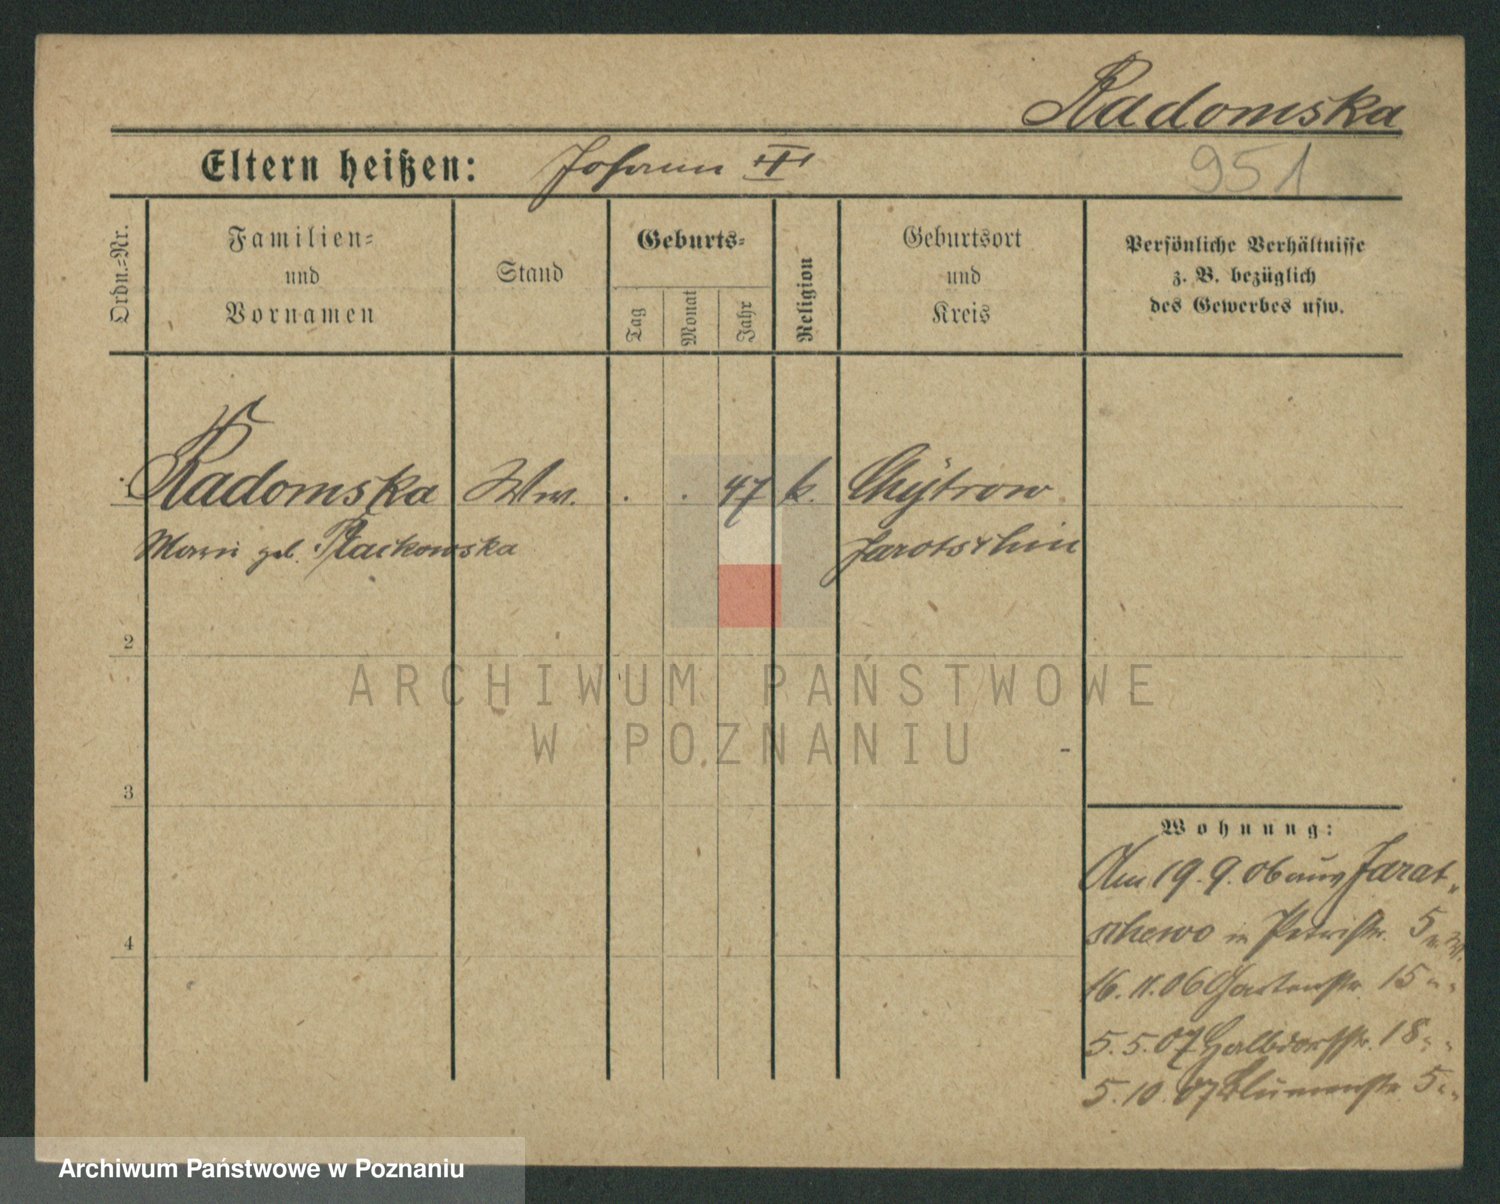 Radomska
Eltern heißen: Johann III
951
Ordn.-Nr.
Familien-
und
Vornamen
Stand
Geburts-
Tag
Monat
Jahr
Religion
Geburtsort
und
Kreis
Persönliche Verhältnisse
z. B. bezüglich
des Gewerbes usw.
1 Radomska Ww. . . 47 k. Chytrow
geb. Jarotschin
2
ARCHIWUM PAŃSTWOWE
W POZNANIU
3
4
Wohnung:
Am 19.9.06 aus Jarat-
schewo in Petristr. 5
16.11.06 Gartenstr. 15
5.5.07 Halbdorfstr. 18
5.10.07 Blumenstr. 5
Archiwum Państwowe w Poznaniu